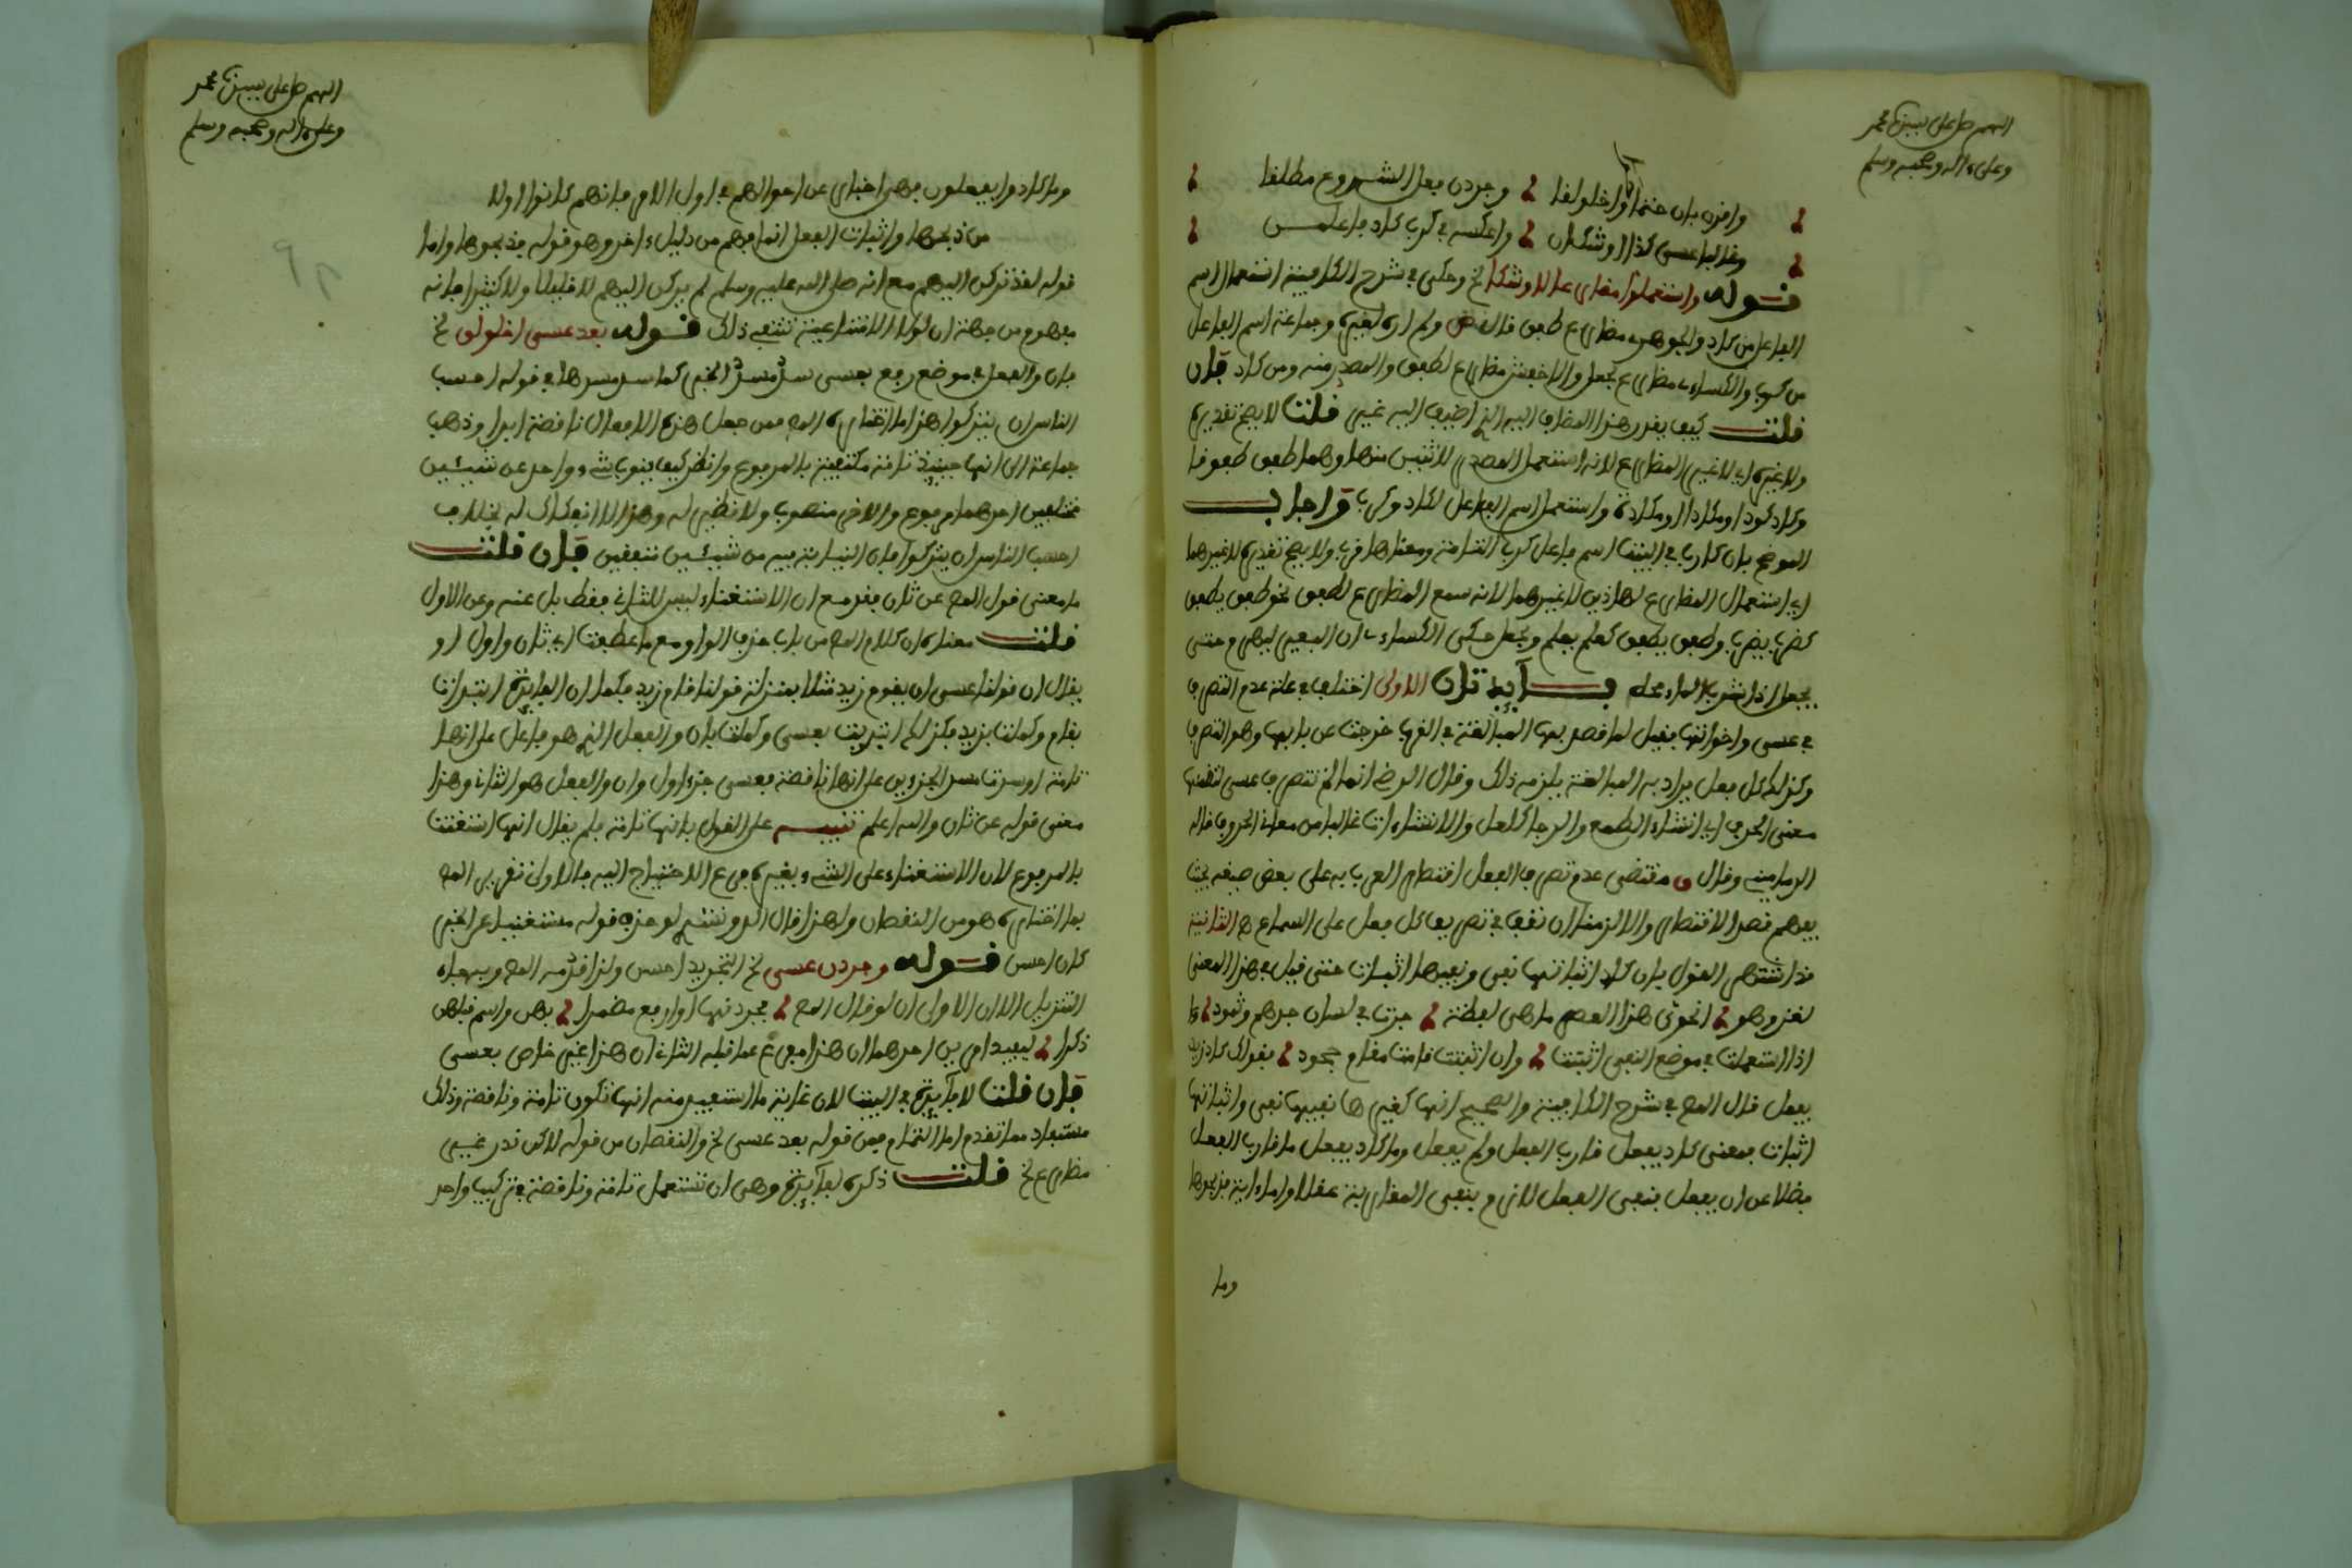 اللهم صل على نبينا محمد
وعلى ءاله وصحبه وسلم
واقرن بان حتما اخلولقا وجردن فعل الشروع مطلقا
وغالبا عسى كذا اوشكا واعكسه في كرب كاد فاعلمن
قوله واستعملوا مضارعا لاوشكا لخ وحكى في شرح الكافية استعمال اسم
الفاعل من كاد والجوهري مضارع طفق قال ض ولم اره لغيره وجماعة اسم الفاعل
من كرب والكساءي مضارع جعل والاخفش مضارع لطفق والمصدر منه ومن كاد فان
قلت كيف يقدر هذا المضاف اليه الذي اضيف اليه غير قلت لا يصح تقديره
ولا غيره اي لا غير المضارع لانه استعمل المصدر لاثنين منها وهما طفق طفوقا
وكاد كودا ومكادا ومكادة واستعمل اسم الفاعل لكاد وكرب واجاب
الموضح بان كاربا في البيت اسم فاعل كرب التامة ومعناها قرب ولا يصح تقديره لا غيرهما
اي استعمال المضارع لهاذين لا غيرهما لانه سمع المضارع لطفق نحو طفق يطفق
كضرب يضرب وطفق يطفق كعلم يعلم وجعل حكى الكساءي ان البعير ليهرم حتى
يجعل اذا شرب الماء مجه فايدتان الاولى اختلف في علة عدم التصرف
في عسى واخواتها فقيل لما قصد بها المبالغة في القرب خرجت عن بابها وهو التصرف
وكذلك كل فعل يراد به المبالغة يلزمه ذلك وقال الرضي انما لم تتصرف عسى لتضمنها
معنى الحرف اي انشاء الطمع والرجا كلعل والانشاءات غالبا من معاني الحروف قاله
الدماميني وقال ق مقتضى عدم تصرف الفعل اقتصار العرب به على بعض صيغه بحيث
يفهم قصد الاقتصار والا لزمنا ان نقف في تصريف كل فعل على السماع ه الثانية
قد اشتهر القول بان كاد اثباتها نفي ونفيها اثبات حتى قيل في هذا المعنى
لغز وهو انحوي هذا العصر ما هي لفظة جرت في لسان جرهم وثمود
اذا استعملت في موضع النفي اثبتت وان اثبتت قامت مقام جحود فقولك كاد زيد
يفعل قال المص في شرح الكافية والصحيح انها كغيرها نفيها نفي واثباتها
اثبات فمعنى كاد يفعل قارب الفعل ولم يفعل وما كاد يفعل ما قارب الفعل
فضلا عن ان يفعل فنفي الفعل لازم بنفي المقاربة عقلا واما ءاية فذبحوها
وما
اللهم صل على نبينا محمد
وعلى ءاله وصحبه وسلم
وما كادوا يفعلون فهو اخبار عن احوالهم في اول الامر فانهم كانوا اولا
من ذبحها واثبات الفعل انما فهم من دليل ءاخر وهو قوله فذبحوها واما
قوله لقد تركن اليهم مع انه صلى الله عليه وسلم لم يركن اليهم لا قليلا ولا كثيرا فانه
مفهوم من جهة ان لولا الامتناعية تقتضي ذلك قوله بعد عسى اخلولق لخ
فان والفعل في موضع رفع بعسى سد مسد الخبر كما سد مسدها في قوله احسب
الناس ان يتركوا هذا ما اختاره المص من جعل هذه الافعال ناقصة ابدا وذهب
جماعة الى انها حينيذ تامة مكتفية بالمرفوع وانظر كيف ينوب شيء واحد عن شيئين
مختلفين احدهما مرفوع والاخر منصوب ولا نظير له وهذا لا انفكاك له بخلاف
احسب الناس ان يتركوا فان النيابة فيه من شيئين متفقين فان قلت
ما معنى قول المص عن ثان فقد مع ان الاستغناء ليس للثاني فقط بل عنه وعن الاول
قلت معناه ان كلام المص من باب حذف الواو مع ما عطفت اي ثان واول او
يقال ان قولنا عسى ان يقوم زيد مثلا بمنزلة قولنا قام زيد فكما ان الفايدة ابتدات
بقام وكملت بزيد فكذلك ابتديت بعسى وكملت بان والفعل الذي هو فاعل على انها
تامة او سدت مسد الجزءين على انها ناقصة فعسى جزء اول وان والفعل هو الثاني وهذا
معنى قوله عن ثان والله اعلم تنبيه على القول بانها تامة فلم يقال انها استغنت
بالمرفوع لان الاستغناء على الشيء بغيره فرع الاحتياج اليه فالاولى تقرير المص
بما اختاره هو من النقصان ولهذا قال لو حذف قوله مستغنيا عن الخبر
كان احسن قوله وجردن عسى لخ التجريد احسن ولذا قدمه المص وبه جاء
التنزيل الا ان الاولى ان لو قال المص مجردنها اوارفع مضمرا بهن واسم قبلهن
ذكرا ليفيد امرين احدهما ان هذا مفرع عما قبله الثاني ان هذا غير خاص بعسى
فان قلت لا فايدة في البيت لان غاية ما استفيد منه انها تكون تامة وناقصة وذلك
مستفاد مما تقدم اما التمام فمن قوله بعد عسى لخ والنقصان من قوله لاكن ندر غير
مضارع لخ قلت ذكره لفايدة وهي ان تستعمل تامة وناقصة في تركيب واحد